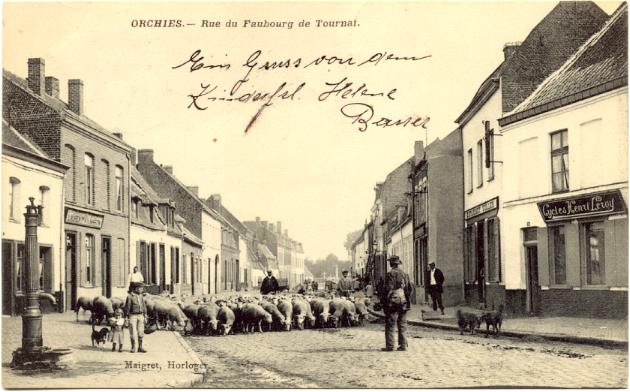 ORCHIES.— Rue du Faubourg de Tournai.
Ein Gruss von dem
Kinderfrl. Helene
Basser
Cycles Henri Leroy
Maigret, Horloger